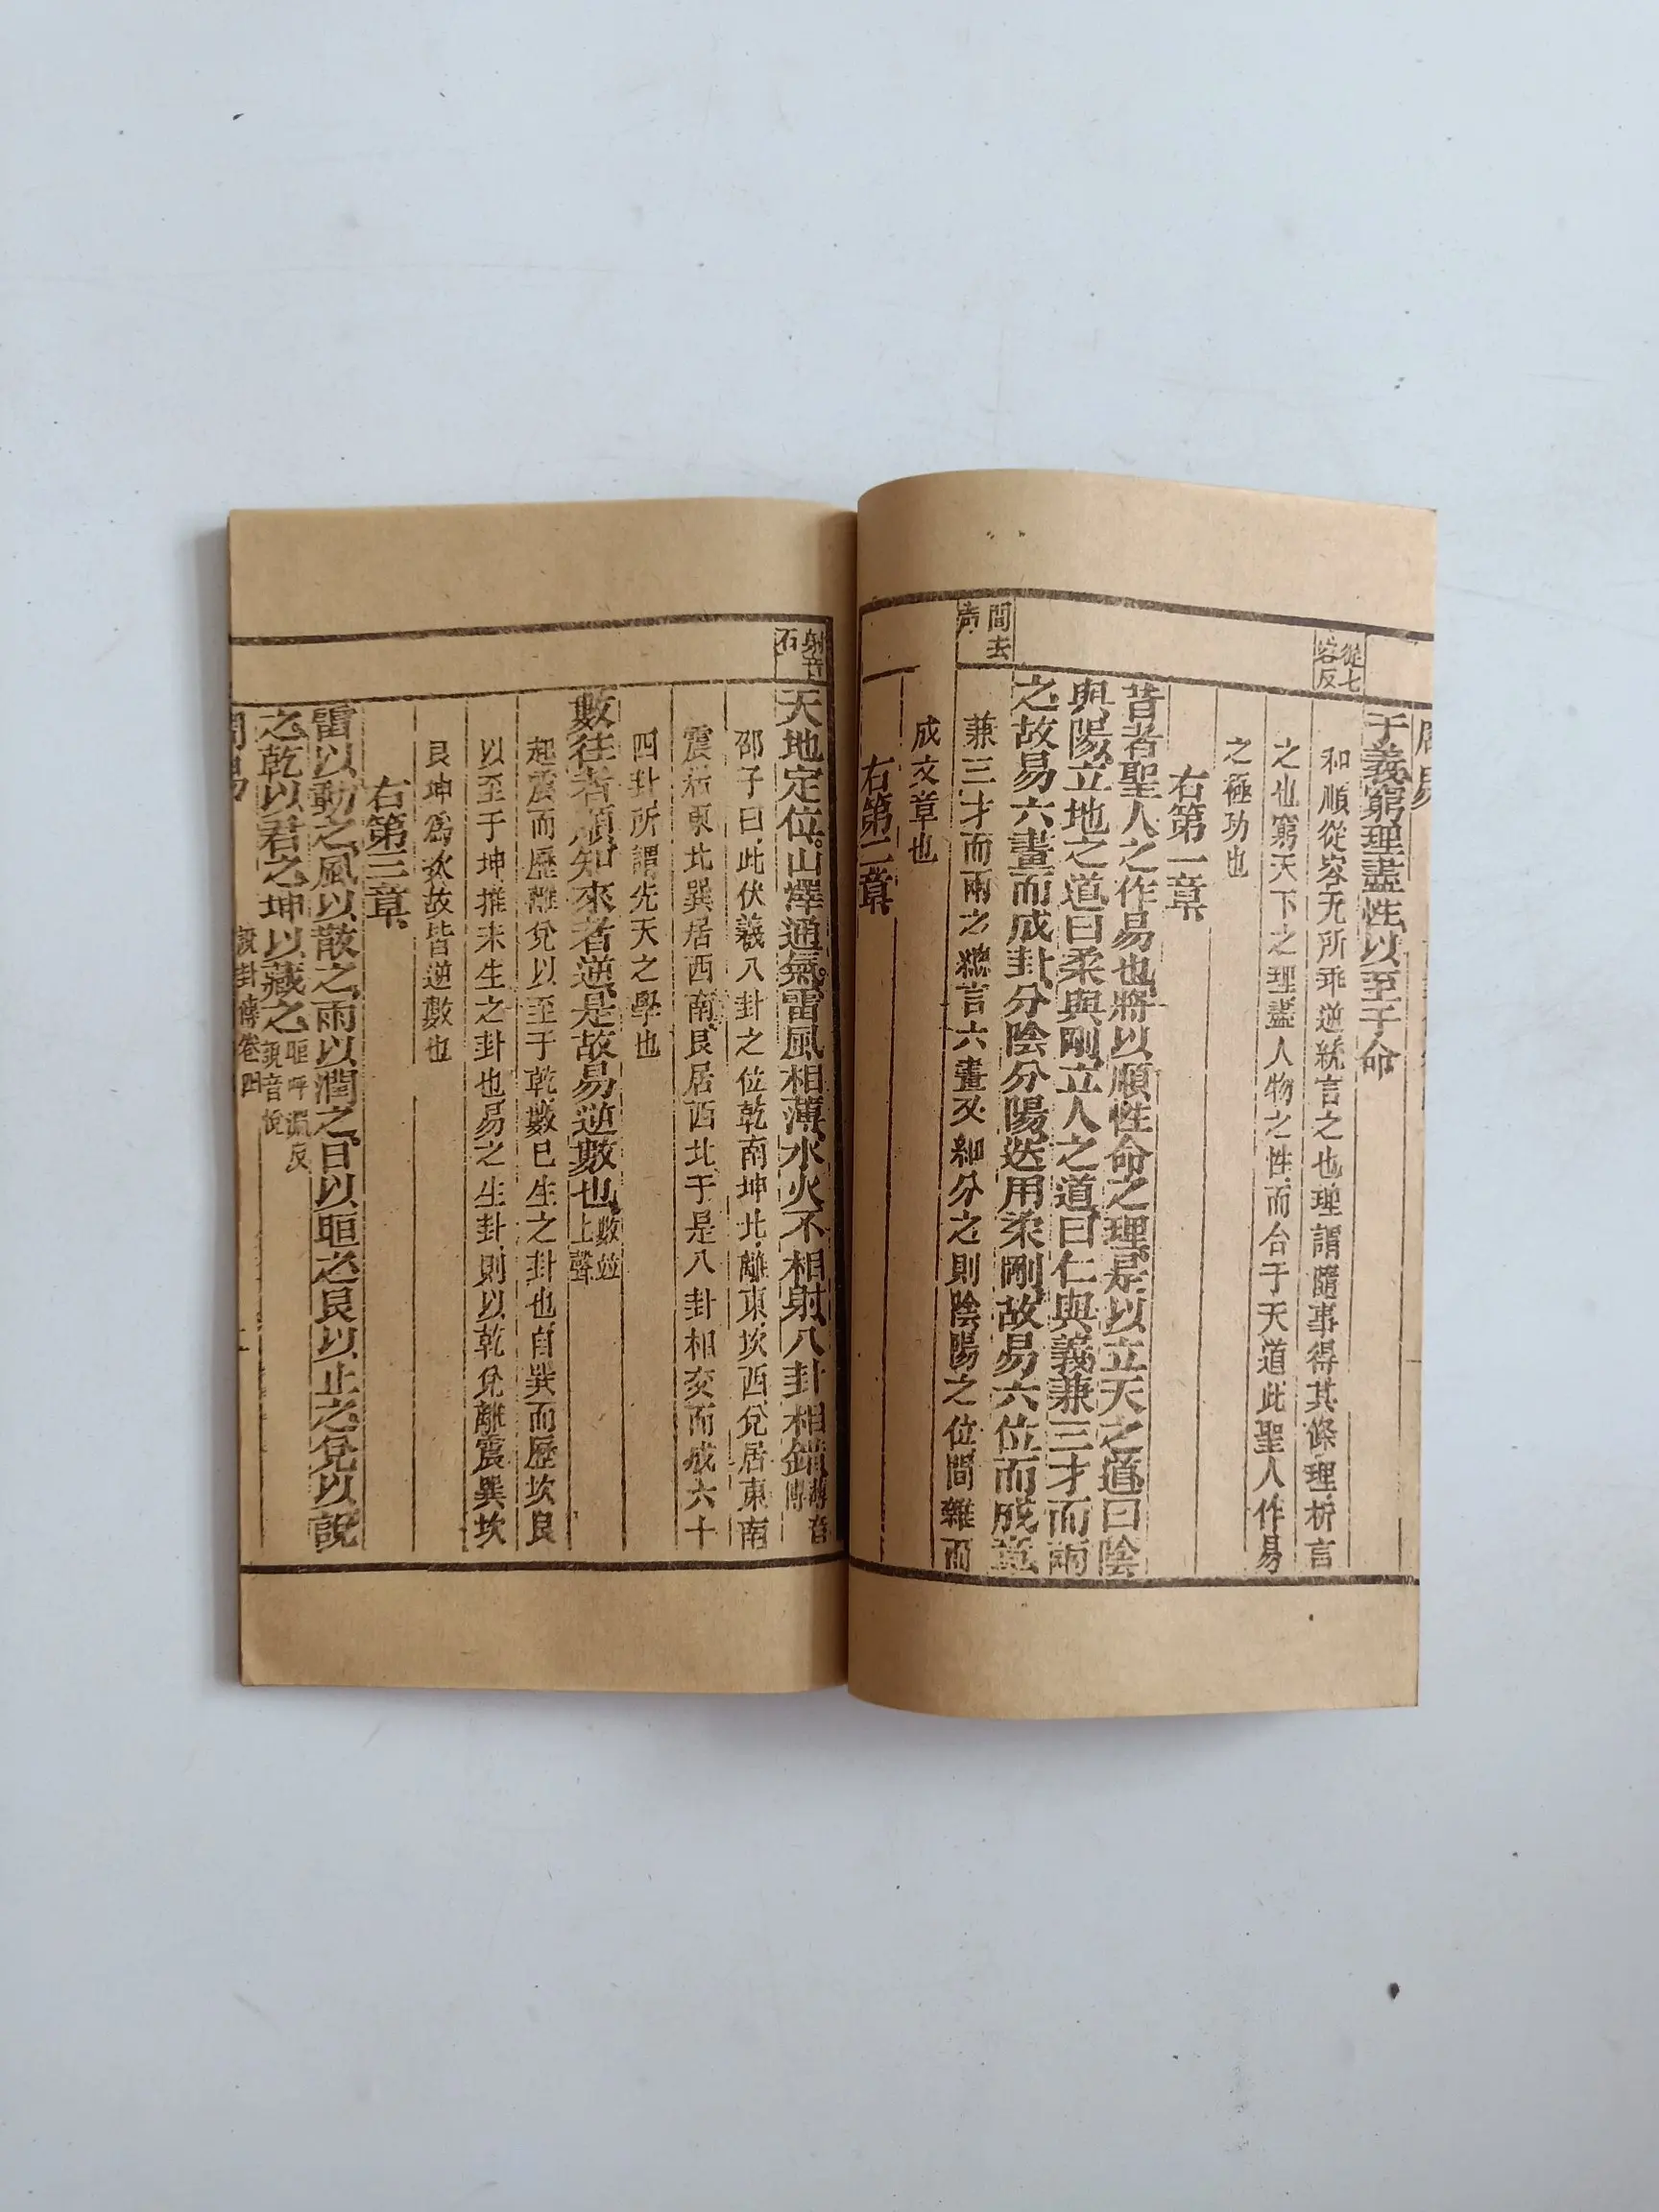 周易
從七
容反
于義窮理盡性以至于命
和順從容无所乖逆統言之也理謂隨事得其條理析言
之也窮天下之理盡人物之性而合于天道此聖人作易
之極功也
右第一章
昔者聖人之作易也將以順性命之理是以立天之道曰陰
與陽立地之道曰柔與剛立人之道曰仁與義兼三才而兩
之故易六畫而成卦分陰分陽迭用柔剛故易六位而成章
間去
声
兼三才而兩之總言六畫又細分之則陰陽之位間雜而
成文章也
右第二章
射音
石
天地定位。山澤通氣。雷風相薄水火不相射八卦相錯薄音
博
邵子曰此伏羲八卦之位乾南坤北離東坎西兌居東南
震居東北巽居西南艮居西北于是八卦相交而成六十
四卦所謂先天之學也
數往者順知來者逆是故易逆數也數並
上聲
起震而歷離兌以至于乾數已生之卦也自巽而歷坎艮
以至于坤推未生之卦也易之生卦則以乾兌離震巽坎
艮坤爲次故皆逆數也
右第三章
雷以動之風以散之雨以潤之日以晅之艮以止之兌以說
之乾以君之坤以藏之晅呼淵反
說音悅
周易
說卦傳卷四